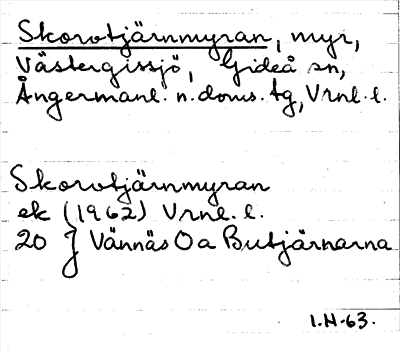 Skorotjärnmyran, myr,
Västergissjö, Gideå sn,
Ångermanl. n. doms. tg, Vrnl. l.
Skorotjärnmyran
ek (1962) Vrnl. l.
20 J Vännäs Öa Butjärnarna
1.H.63.